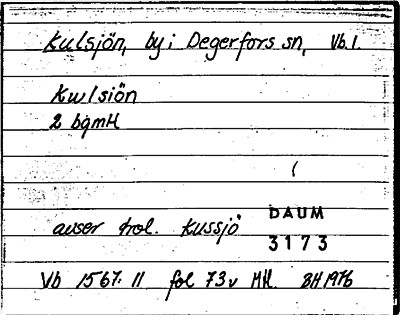 Kulsjön, by i Degerfors sn, Vb.l.
Kwlsiön
2 bgmH
avser trol. Kussjö
DAUM
3173
Vb 1567:11 fol 73v Mtl. BH 1976